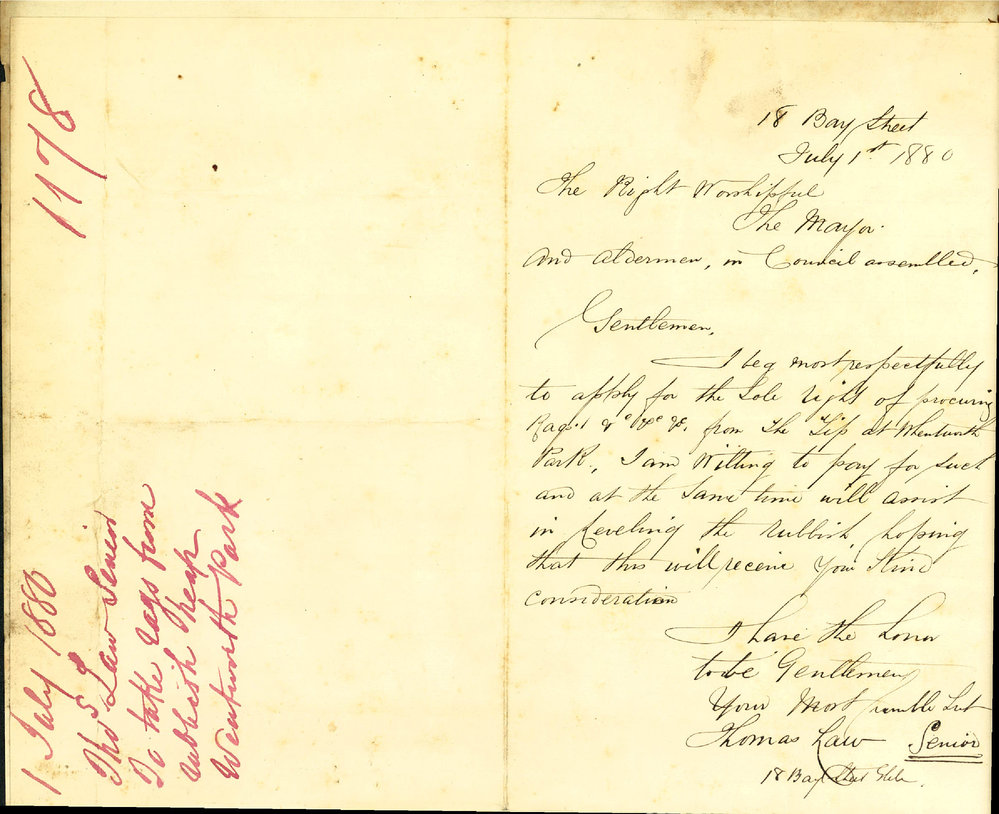 1178
1 July 1880
Thos Law Senior
To take rags from
rubbish heap
Wentworth Park
18 Bay Street
July 1st 1880
The Right Worshipful
The Mayor.
and aldermen, in Council assembled,
Gentlemen,
I beg most respectfully
to apply for the Sole right of procuring
Rags &c &c &c. from the Tip at Whentworth
Park, I am Willing to pay for such
and at the Same time will assist
in leveling the rubbish hoping
that this will receive your Kind
consideration
I have the honor
to be Gentlemen
Your Most humble Svt
Thomas Law Senior
18 Bay Street Glebe.